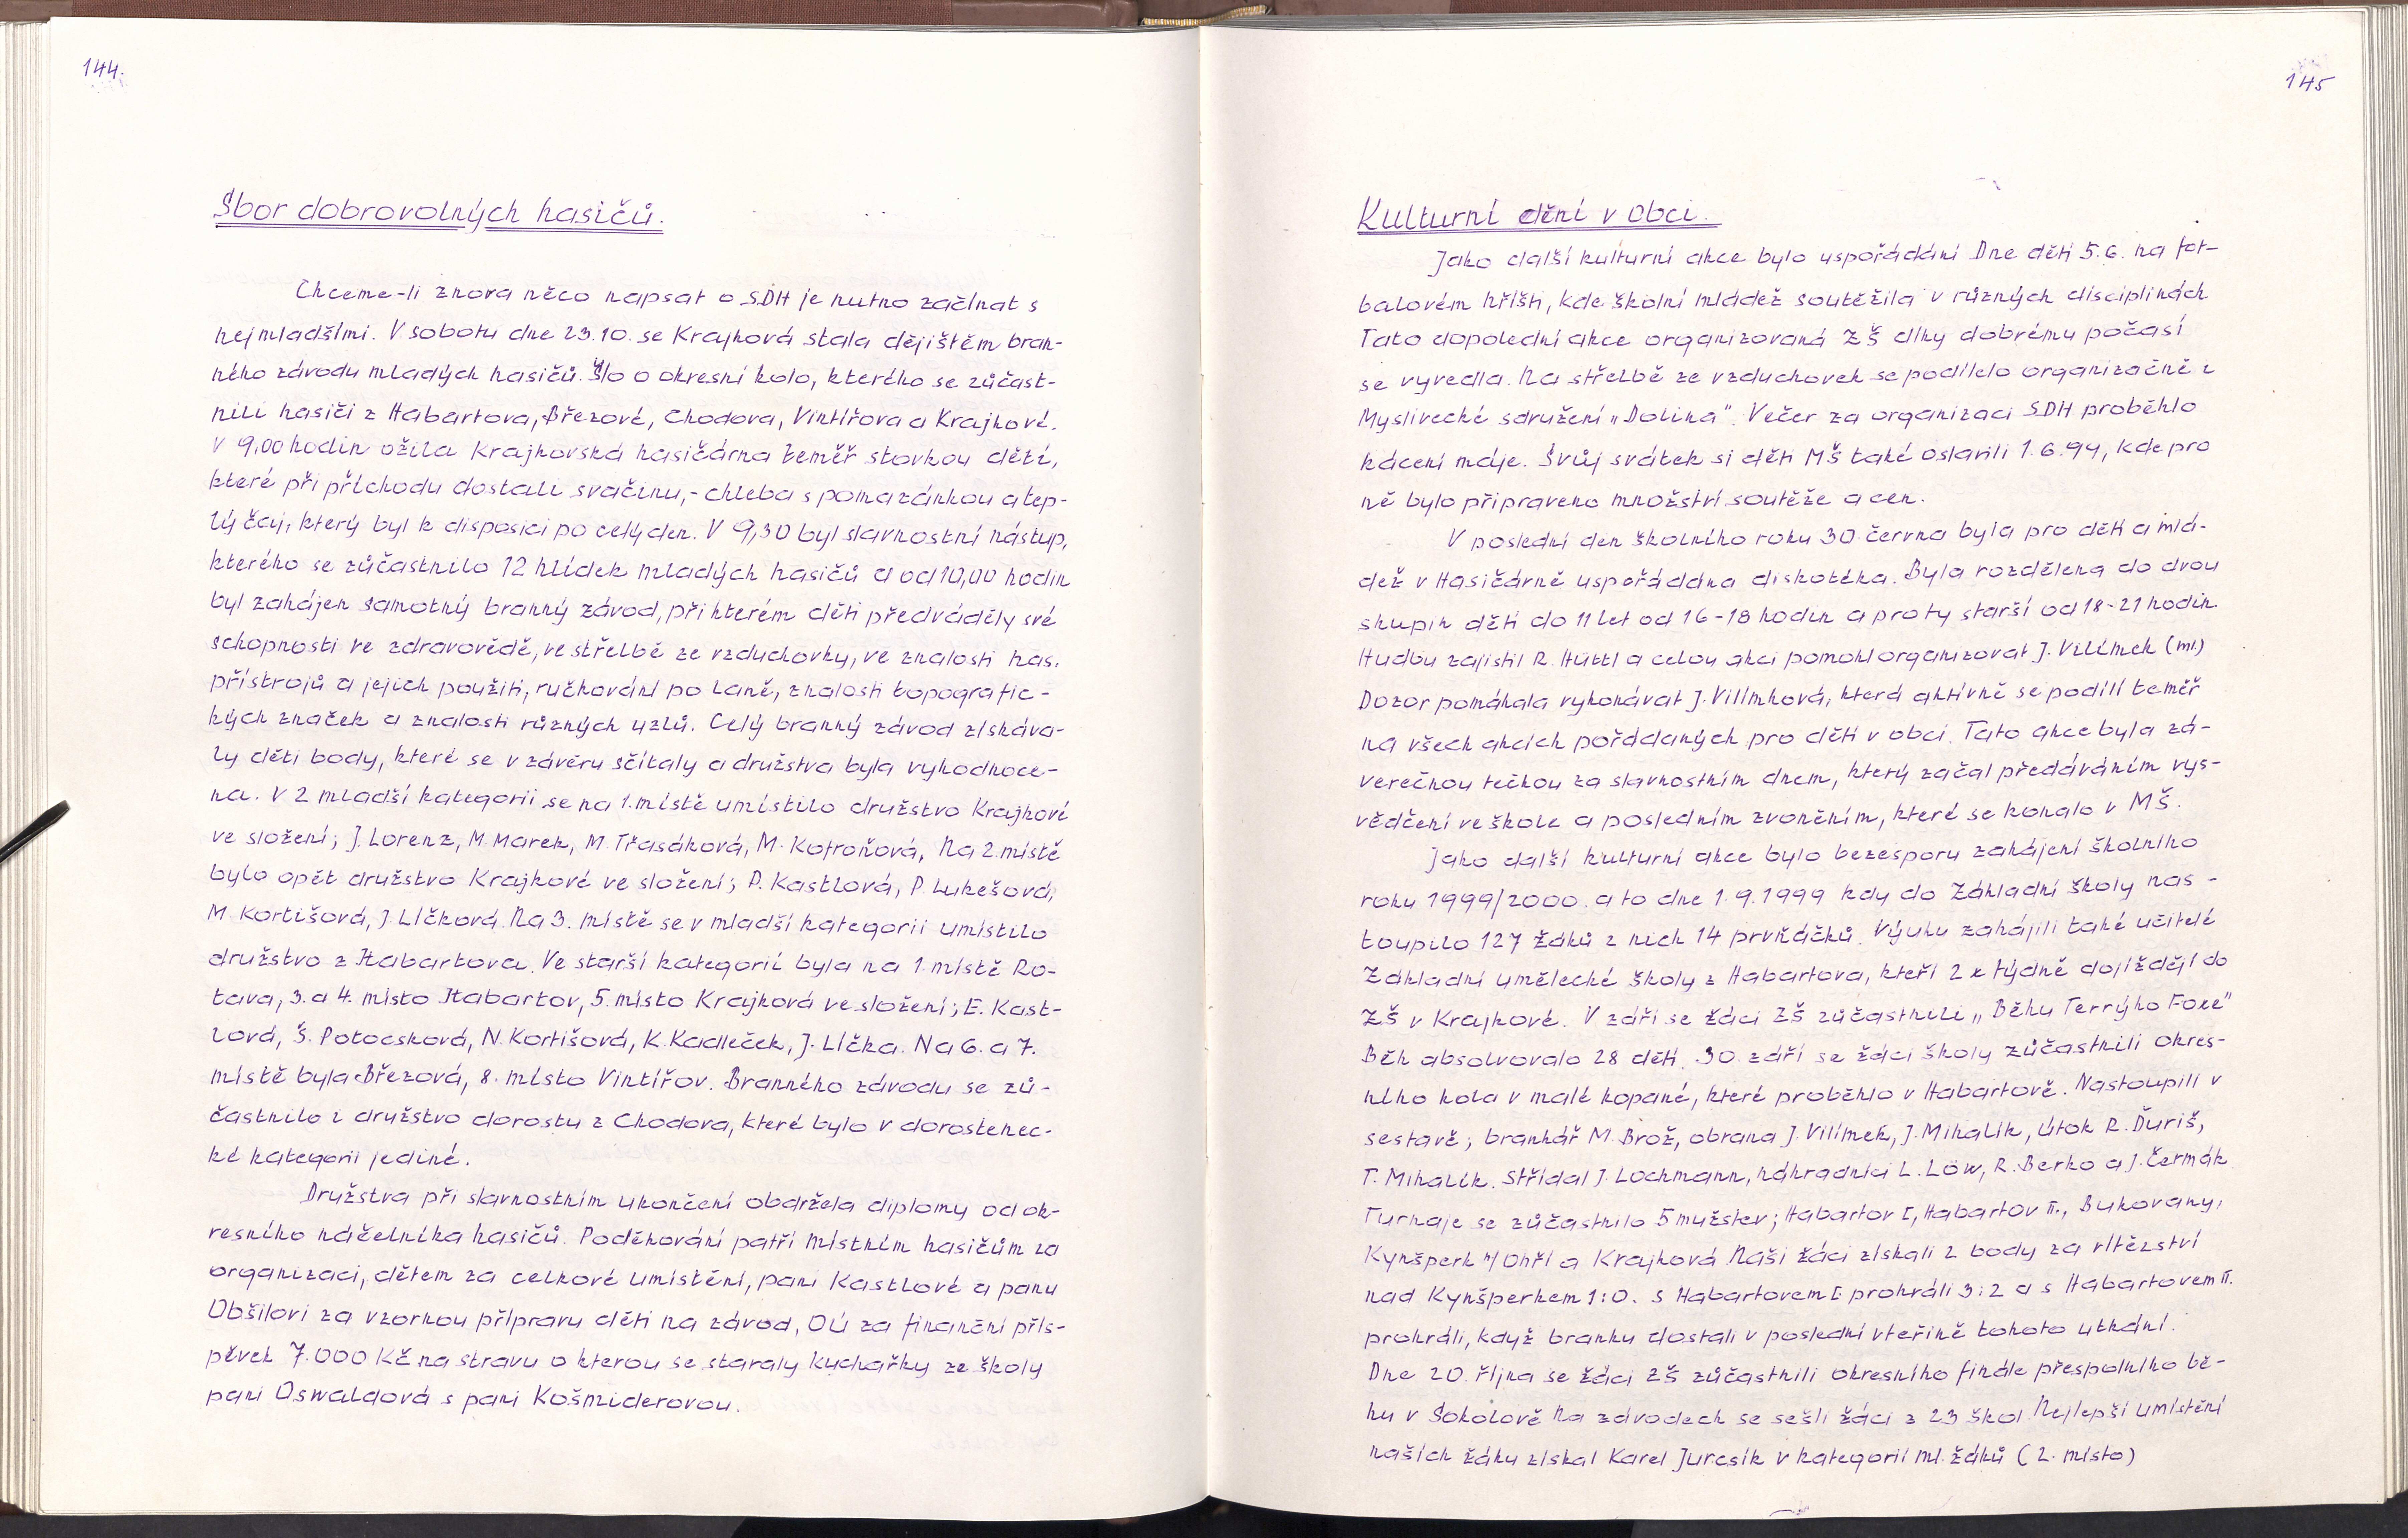 144.
Sbor dobrovolných hasičů.
Chceme-li znova něco napsat o SDH je nutno začínat s
nejmladšími. V sobotu dne 23.10. se Krajková stala dějištěm bran-
ného závodu mladých hasičů. Šlo o okresní kolo, kterého se zůčast-
nili hasiči z Habartova, Březové, Chodova, Vintířova a Krajkové.
V 9,00 hodin ožila Krajkovská hasičárna téměř stovkou dětí,
které při příchodu dostali svačinu,- chleba s pomazánkou a tep-
lý čaj, který byl k disposici po celý den. V 9,30 byl slavnostní nástup,
kterého se zůčastnilo 12 hlídek mladých hasičů a od 10,00 hodin
byl zahájen samotný branný závod, při kterém děti předváděly své
schopnosti ve zdravovědě, ve střelbě ze vzduchovky, ve znalosti has.
přístrojů a jejich použití, ručkování po laně, znalosti topografic-
kých značek a znalosti různých uzlů. Celý branný závod získáva-
ly děti body, které se v závěru sčítaly a družstva byla vyhodnoce-
na. V 2 mladší kategorii se na 1. místě umístilo družstvo Krajkové
ve složení; J. Lorenz, M. Marek, M. Třasáková, M. Kotroňová, Na 2. místě
bylo opět družstvo Krajkové ve složení; P. Kastlová, P. Lukešová,
M. Kortišová, J. Líčková. Na 3. místě se v mladší kategorii umístilo
družstvo z Habartova. Ve starší kategorii byla na 1. místě Ro-
tava, 3. a 4. místo Habartov, 5. místo Krajková ve složení; E. Kast-
lová, Š. Potocsková, N. Kortišová, K. Kadleček, J. Líčka. Na 6. a 7.
místě byla Březová, 8. místo Vintířov. Branného závodu se zů-
častnilo i družstvo dorostu z Chodova, které bylo v dorostenec-
ké kategorii jediné.
Družstva při slavnostním ukončení obdržela diplomy od ok-
resního náčelníka hasičů. Poděkování patří místním hasičům za
organizaci, dětem za celkové umístění, paní Kastlové a panu
Obšilovi za vzornou přípravu dětí na závod, OÚ za finanční přís-
pěvek 7.000 Kč na stravu o kterou se staraly kuchařky ze školy
paní Oswaldová s paní Košmiderovou.
145
Kulturní dění v obci.
Jako další kulturní akce bylo uspořádání Dne dětí 5.6. na fot-
balovém hřišti, kde školní mládež soutěžila v různých disciplinách
Tato dopolední akce organizovaná ZŠ díky dobrému počasí
se vyvedla. Na střelbě ze vzduchovek se podílelo organizačně i
Myslivecké sdružení „Dolina". Večer za organizaci SDH proběhlo
kácení máje. Svůj svátek si děti MŠ také oslavili 1.6.99, kde pro
ně bylo připraveno množství soutěže a cen.
V poslední den školního roku 30. června byla pro děti a mlá-
dež v Hasičárně uspořádána diskotéka. Byla rozdělena do dvou
skupin děti do 11 let od 16-18 hodin a pro ty starší od 18-21 hodin.
Hudbu zajistil R. Hüttl a celou akci pomohl organizovat J. Vilímek (ml.)
Dozor pomáhala vykonávat J. Vilímková, která aktivně se podílí téměř
na všech akcích pořádaných pro děti v obci. Tato akce byla zá-
verečnou tečkou za slavnostním dnem, který začal předáváním vys-
vědčení ve škole a posledním zvoněním, které se konalo v MŠ.
Jako další kulturní akce bylo bezesporu zahájení školního
roku 1999/2000. a to dne 1.9.1999 kdy do Základní školy nas-
toupilo 127 žáků z nich 14 prvňáčků. Výuku zahájili také učitelé
Základní umělecké školy z Habartova, kteří 2x týdně dojíždějí do
ZŠ v Krajkové. V září se žáci ZŠ zůčastnili „Běhu Terryho Foxe"
Běh absolvovalo 28 dětí. 30. září se žáci školy zůčastnili okres-
ního kola v malé kopané, které proběhlo v Habartově. Nastoupili v
sestavě; brankář M. Brož, obrana J. Vilímek, J. Mihalík, útok R. Ďuriš,
T. Mihalík. Střídal J. Lochmann, náhradníci L. Löw, R. Berko a J. Čermák
Turnaje se zůčastnilo 5 mužstev; Habartov I, Habartov II., Bukovany,
Kynšperk n/Ohří a Krajková. Naši žáci získali 2 body za vítězství
nad Kynšperkem 1:0. s Habartovem I prohráli 3:2 a s Habartovem II.
prohráli, když branku dostali v poslední vteřině tohoto utkání.
Dne 20. října se žáci ZŠ zůčastnili okresního finále přespolního bě-
hu v Sokolově. Na závodech se sešli žáci z 23 škol. Nejlepší umístění
našich žáku získal Karel Jurcsík v kategorii ml. žáků (2. místo)